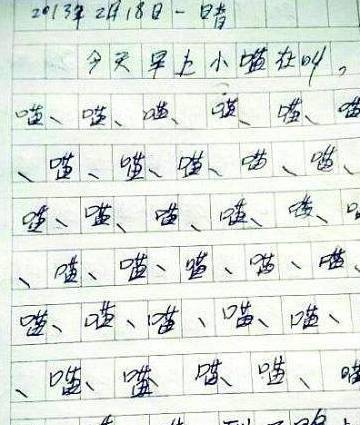 2013年2月18日 一 晴
今天早上小喵在叫。
喵、喵、喵、喵、喵、喵
、喵、喵、喵、喵、喵、
喵、喵、喵、喵、喵、
、喵、喵、喵、喵、喵、
喵、喵、喵、喵、喵、
、喵、喵、喵、喵、喵